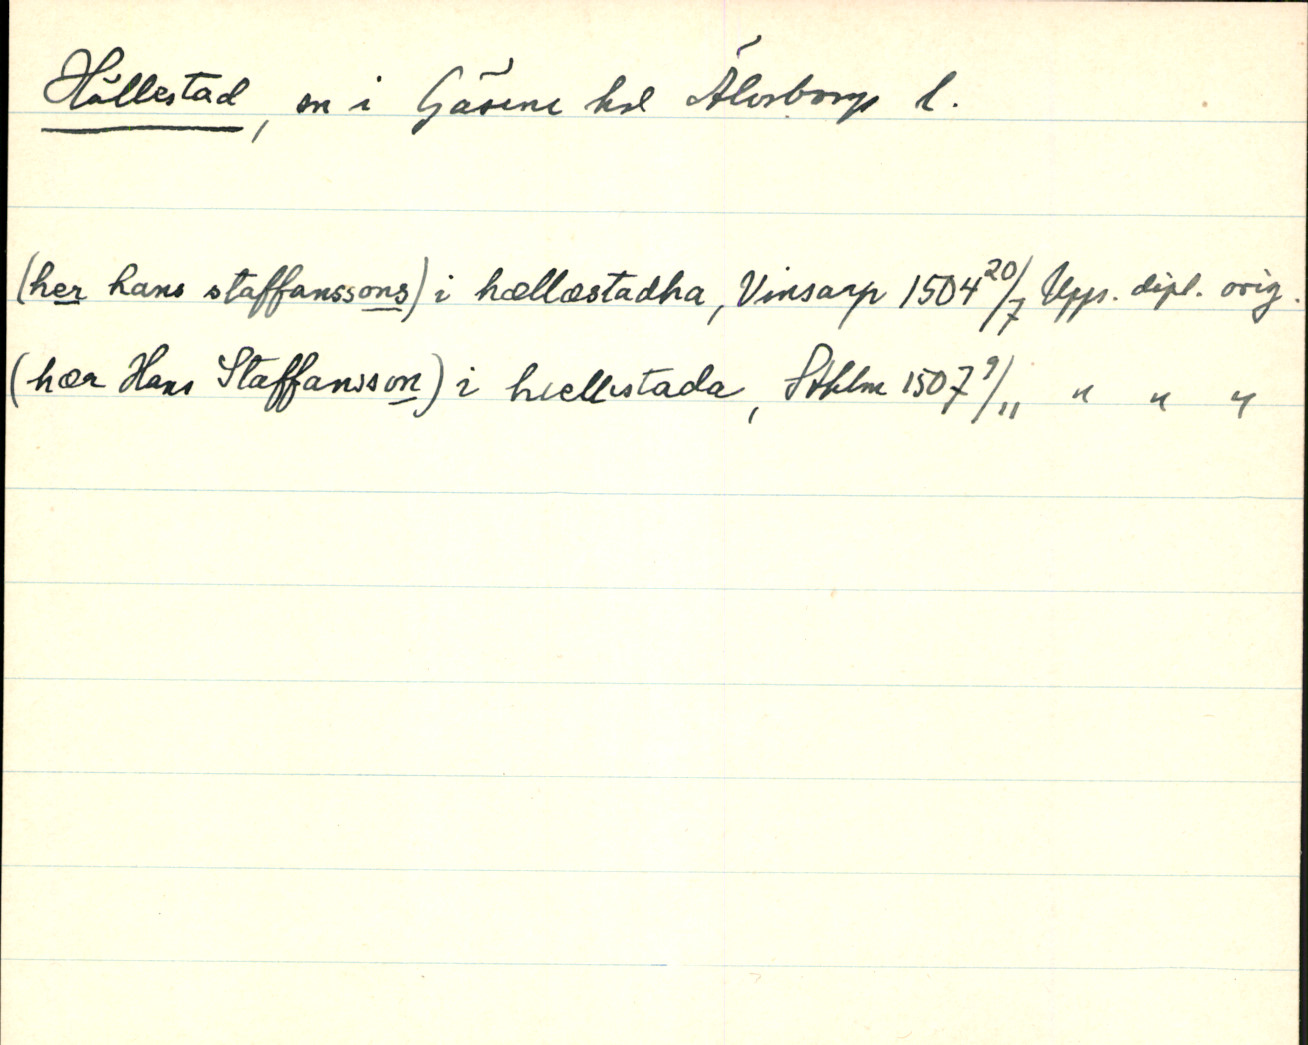 Hällestad, sn i Gäsene hd Älvsborgs l.
(her hans staffanssons) i hællæstadha, Vinsarp 1504 20/7 Upps. dipl. orig.
(hær Hans Staffansson) i hiellestada, Sthlm 1507 9/11 " " "